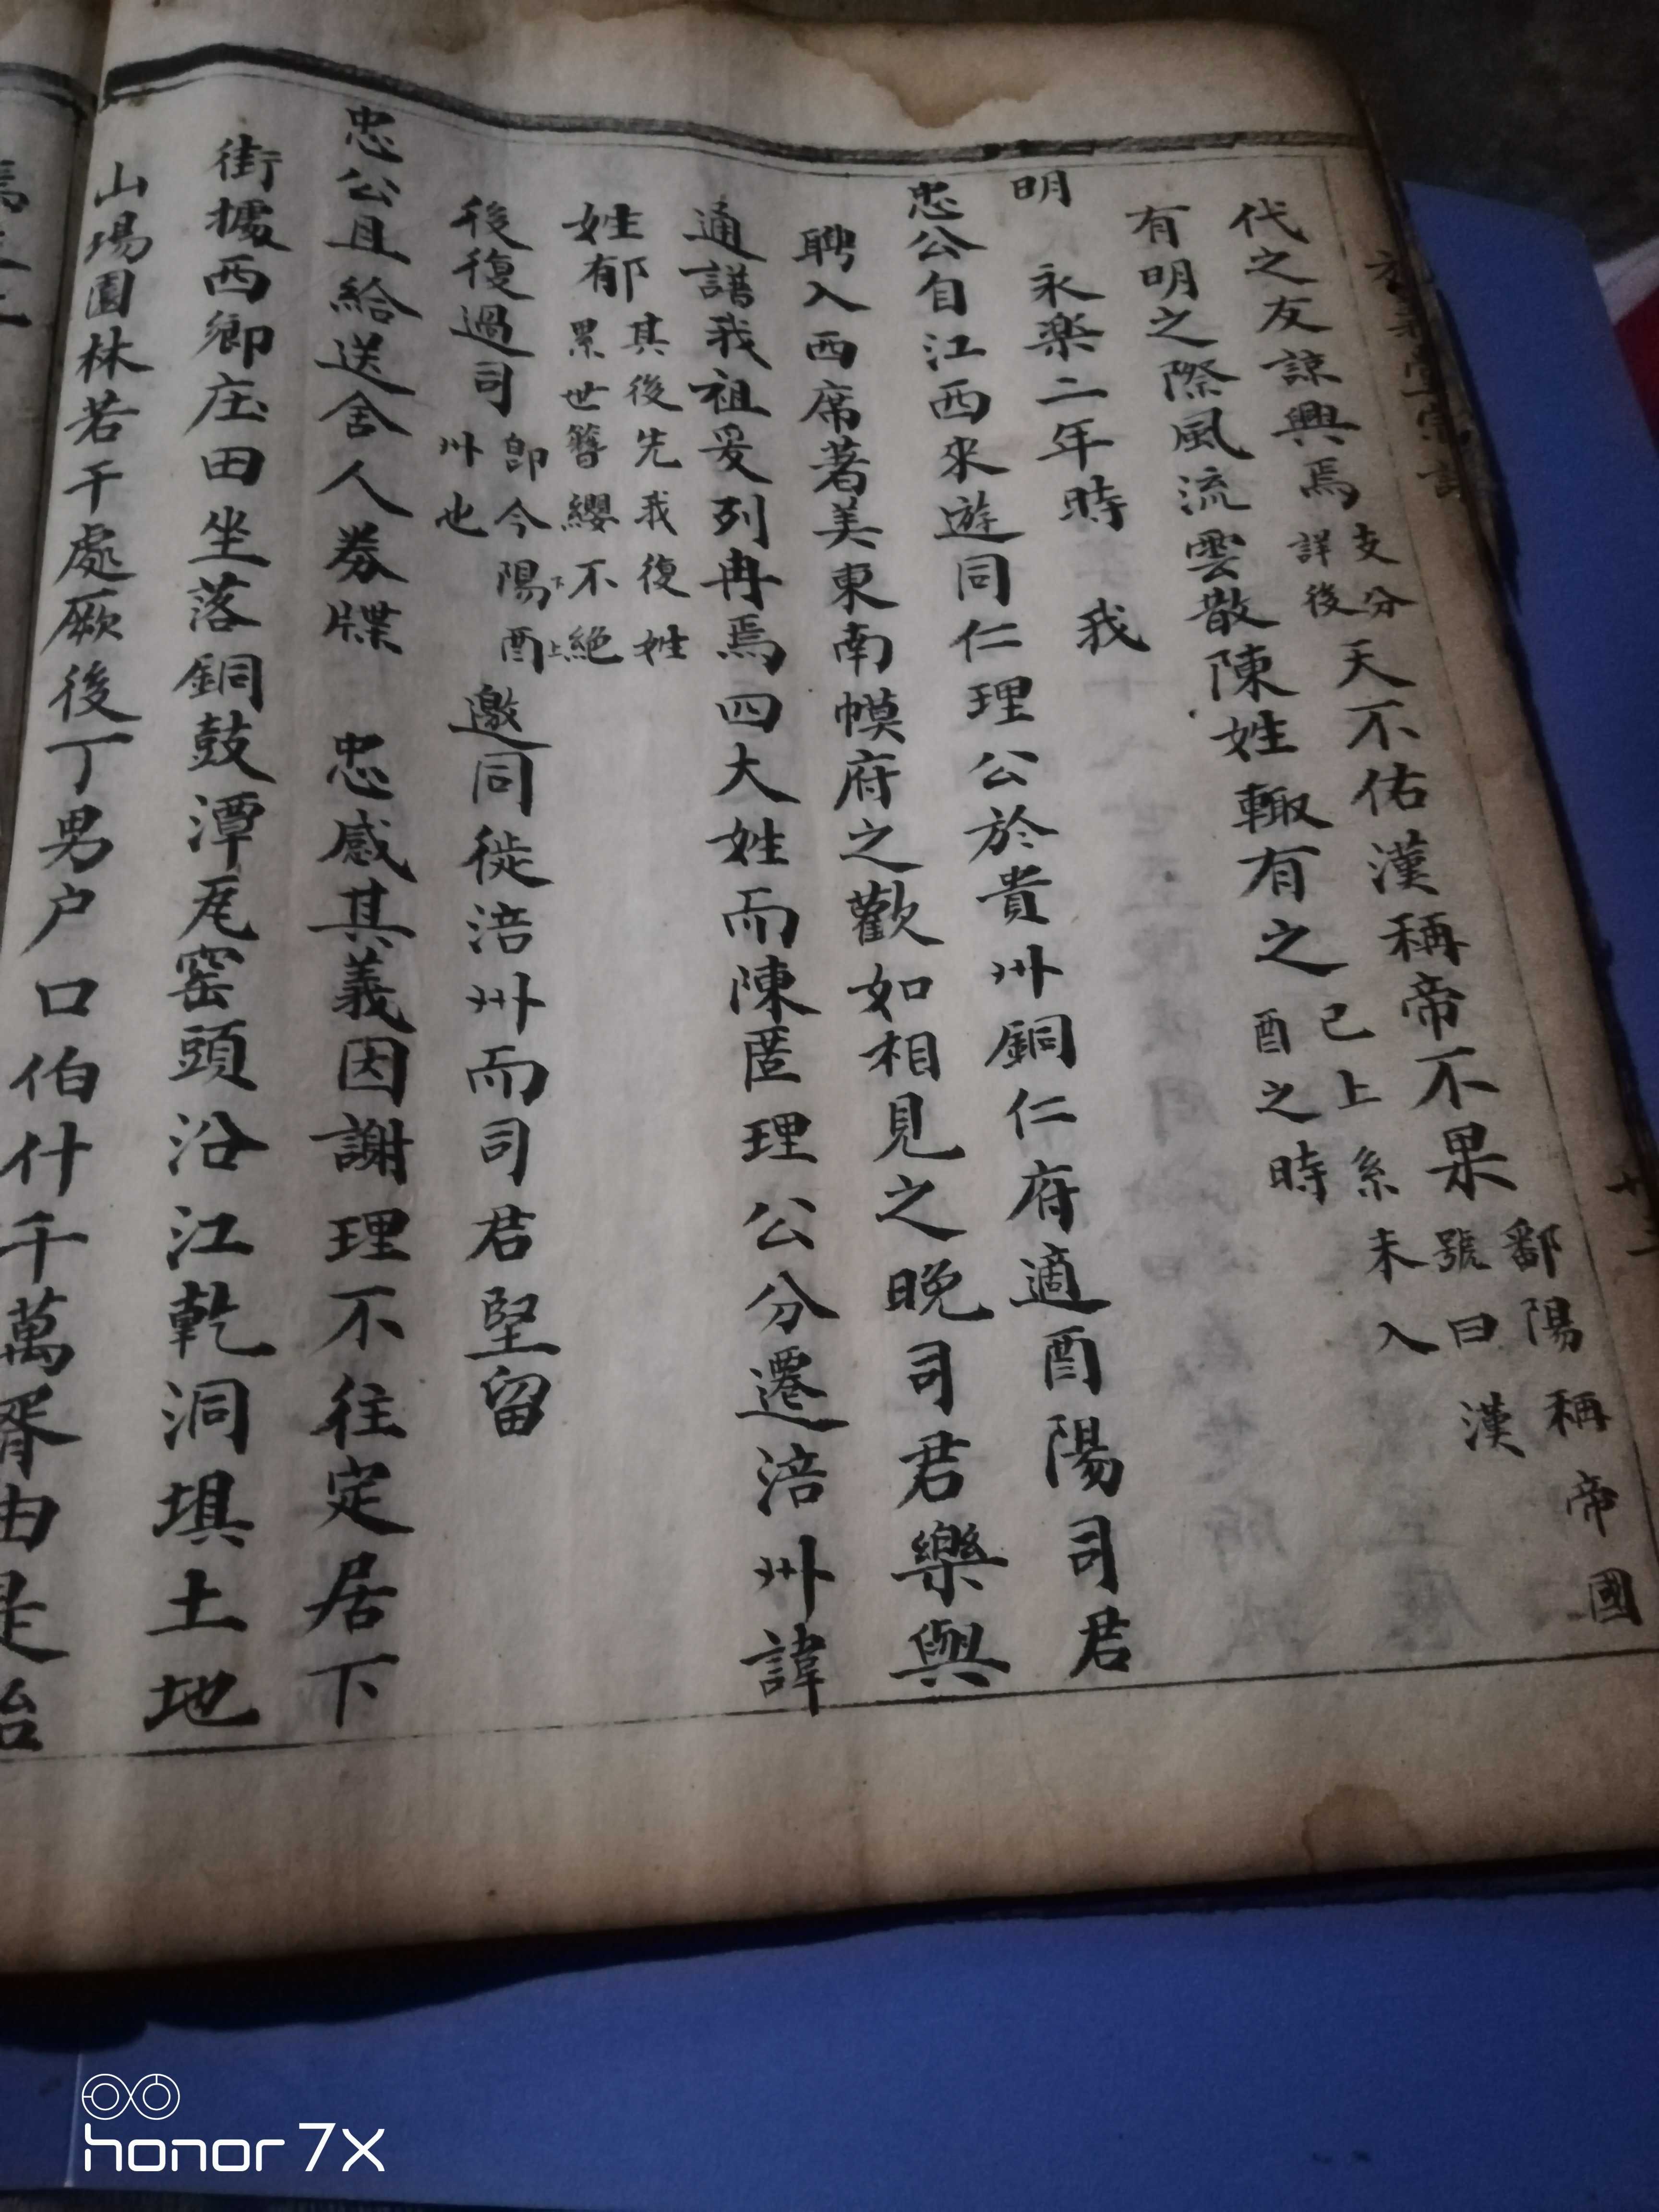 代之友諒興焉支分詳後天不佑漢稱帝不果鄱陽稱帝國號曰漢未入
有明之際風流雲散陳姓輙有之已上系未入酉之時
明
永樂二年時 我
忠公自江西來遊同仁理公於貴州銅仁府適酉陽司君
聘入西席著美東南幙府之歡如相見之晚司君樂與
通譜我祖爰列冉焉四大姓而陳匿理公分遷涪州諱
姓郁其後先我復姓累世簪纓不絕
後復過司即今陽酉州也邀同徙涪州而司君堅留
忠公且給送舍人券牒 忠感其義因謝理不往定居下
街據西鄉庄田坐落銅鼓潭尾窑頭沿江乾洞埧土地
山塲園林若干處厥後丁男户口伯什千萬胥由是始
honor 7X